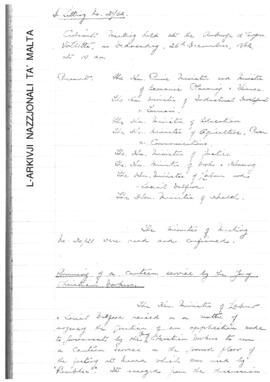 L-ARKIVJI NAZZJONALI TA' MALTA
Sitting No.
Cabinet Meeting held at the Auberge
Valletta, on Wednesday, 26th December, 1962
at 10 am
Present: The Hon. Prime Minister and Minister
of Economic Planning & Finance
The Hon. Minister of Industrial Development
& Tourism
The Hon. Minister of Education
The Hon. Minister of Agriculture, Power
& Communications
The Hon. Minister of Justice
The Hon. Minister of Works & Housing
The Hon. Minister of Labour and
Social Welfare
The Hon. Minister of Health.
The Minutes of Meeting
were read and confirmed.
Running of a canteen service by the Young
Christian Workers
The Hon. Minister of Labour
& Social Welfare raised as a matter of
urgency the question of an application made
by the Young Christian Workers to run
a canteen service on the ground floor of
the which was used by
It emerged from the discussion